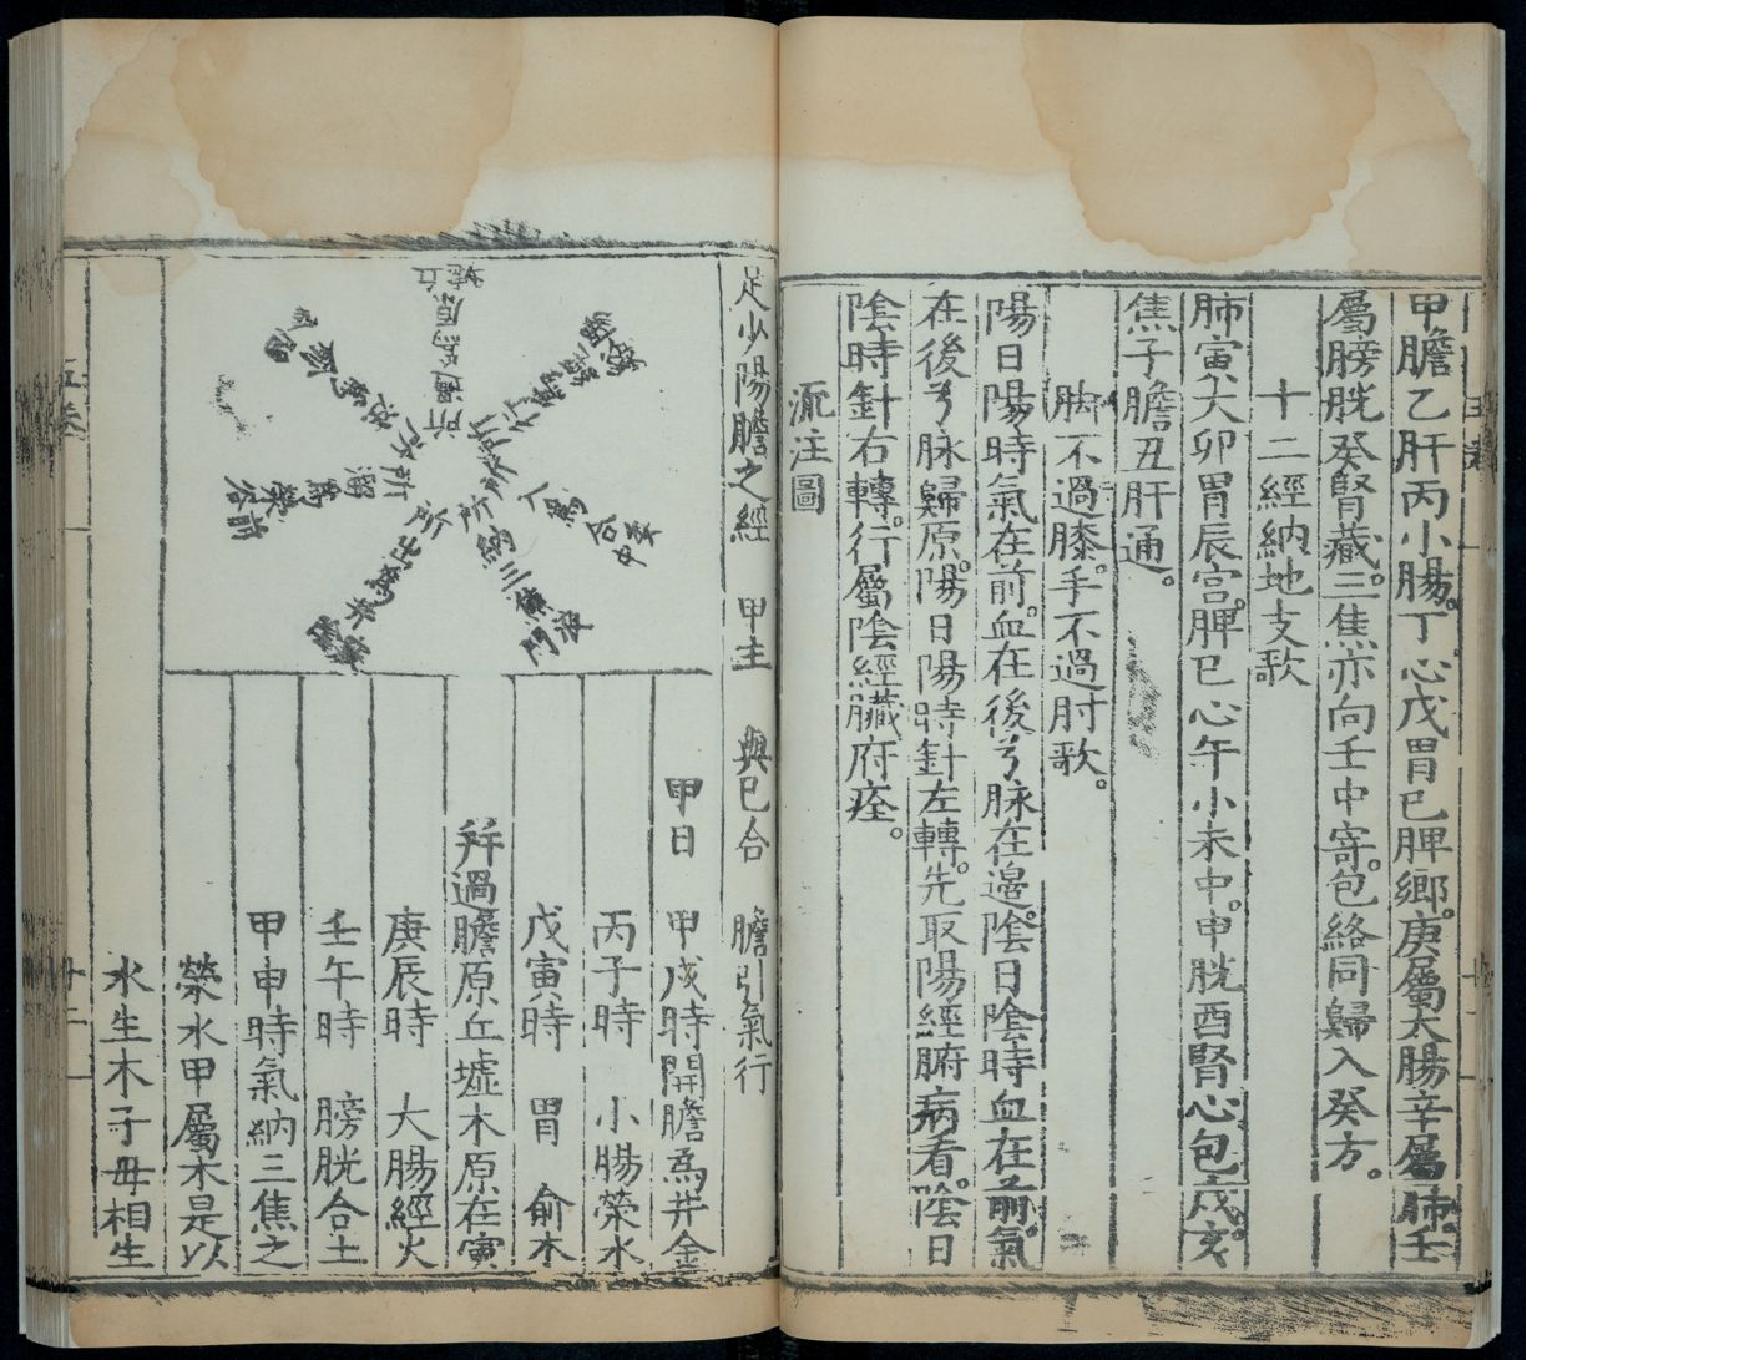 甲膽乙肝丙小腸。丁心戊胃已脾鄉。庚屬太腸辛屬肺。壬
屬膀胱癸腎藏。三焦亦向壬中寄。包絡同歸入癸方。
十二經納地支歌
肺寅大卯胃辰宫。脾巳心午小未中。申胱酉腎心包戌。亥
焦子膽丑肝通。
脚不過膝。手不過肘歌。
陽日陽時氣在前。血在後兮脉在邉。陰日陰時血在前。氣
在後兮脉歸原。陽日陽時針左轉。先取陽經腑病看。陰日
陰時針右轉。行屬陰經臟府痊。
流注圖
足少陽膽之經 甲主 與已合 膽引氣行
甲日 甲戌時開膽爲井金
丙子時 小腸滎水
戊寅時 胃 俞木
并過膽原丘墟木原在寅
庚辰時 大腸經火
壬午時 膀胱合土
甲申時氣納三焦之
滎水甲屬木是以
水生木子母相生
所納三焦
所出爲
五卷
廿二